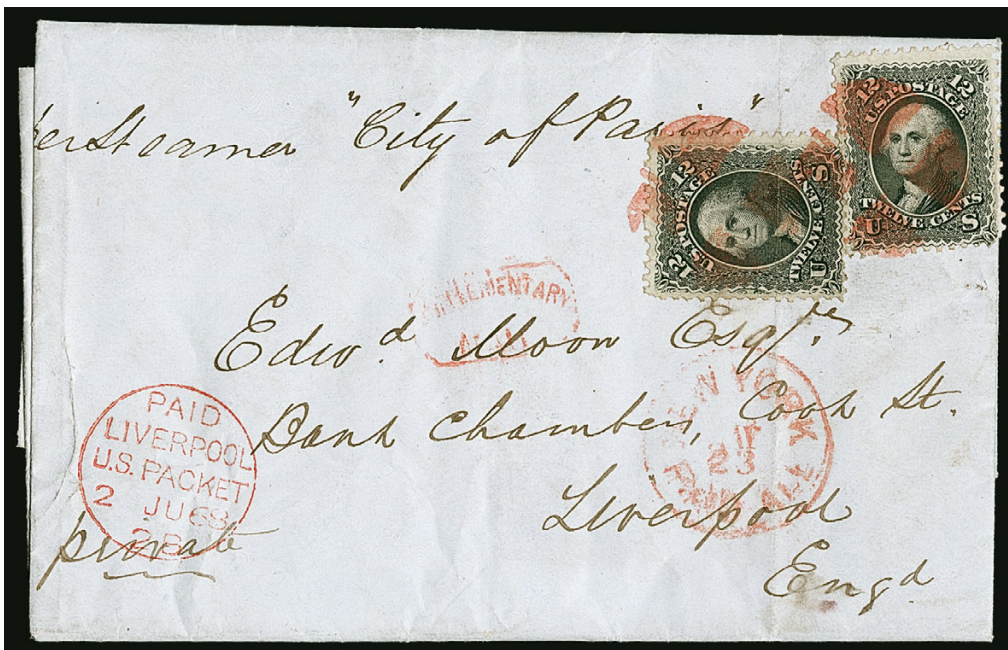 per Steamer "City of Paris"
12 U.S. POSTAGE 12
TWELVE CENTS
U S
12 U.S. POSTAGE 12
TWELVE CENTS
U S
SUPPLEMENTARY
MAIL
Edwd. Moon Esqre.
Bank Chambers, Cook St.
Liverpool
Engd
private
PAID
LIVERPOOL
U.S. PACKET
2 JU 68
2B
NEW YORK
23